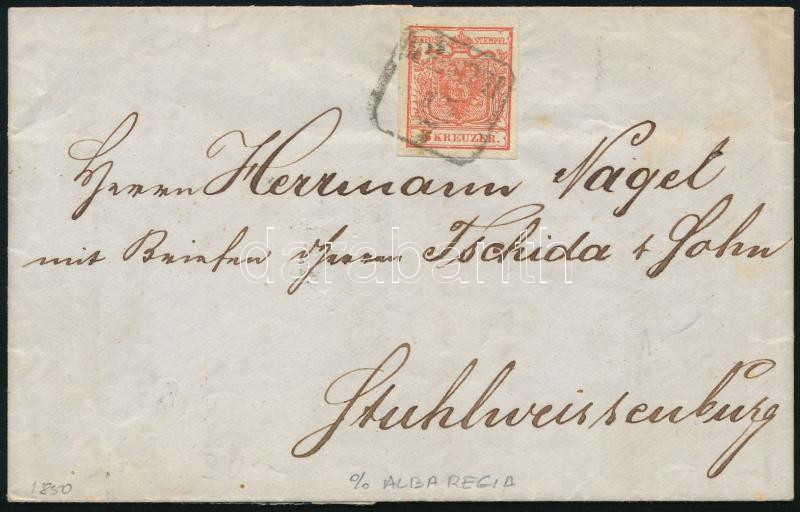 K.K.POST-STEMPEL
3 KREUZER.
Herrn Herrmann Nagel
mit Briefen Herrn Tschida & Sohn
darabanth
Stuhlweissenburg
1850
% ALBA REGIA